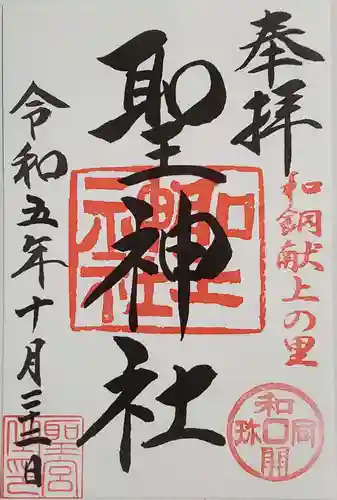 奉拝
和銅献上の里
和同開珎
聖神社
聖神社
令和五年十月 日
聖宮